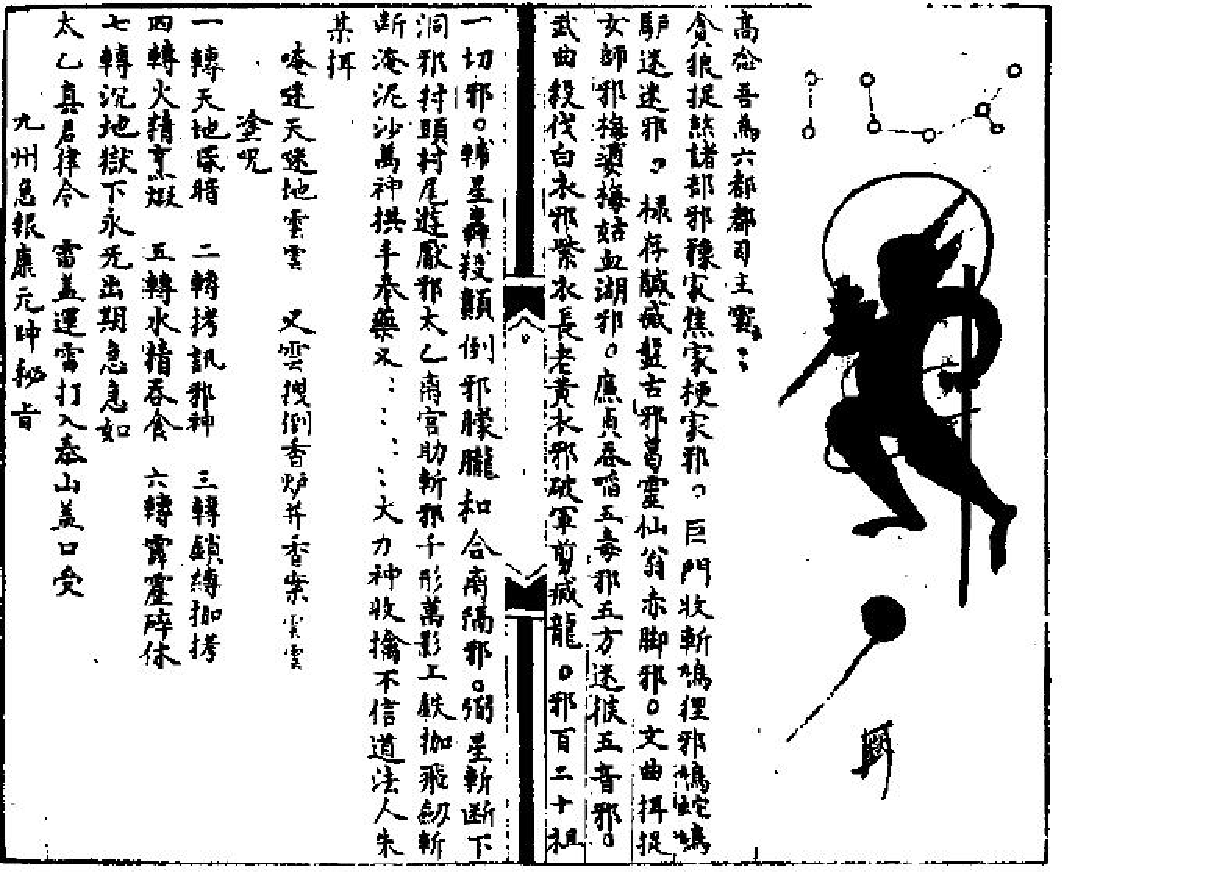 高念吾為六都都司主霻〻
貪狼捉 諸部邪 家焦家梗家邪。巨門收斬鴆狸邪鴆蛇
驢迷迷邪。祿存馘 盤古邪葛靈仙翁赤脚邪。文曲捉
女師邪梅婆梅姑血湖邪。廉貞吞啗五毒邪五方迷猴五音邪。
武曲殺伐白衣邪紫衣長老黃衣邪破軍剪 龍。邪百二十祖
一切邪。輔星轟殺顛倒邪朦朧和合离隔邪。弼星斬断下
洞邪村頭村尾遊厭邪太乙离宮助斬邪千形萬影工鉄枷飛劒斬
断淹泥沙萬神拱手奉藥叉⋮⋮大力神收擒不信道法人朱
某
唵 天 地霻霻 又雲搜倒香炉并香案霻霻
塗咒
一轉天地昏暗 二轉拷訊邪神 三轉鎖縛枷拷
四轉火精烹煅 五轉水精吞食 六轉霹靂碎体
七轉沉地獄下永無出期急急如
太乙真君律令 雷盖運雷打入泰山盖口受
九州急報廉元帥秘旨